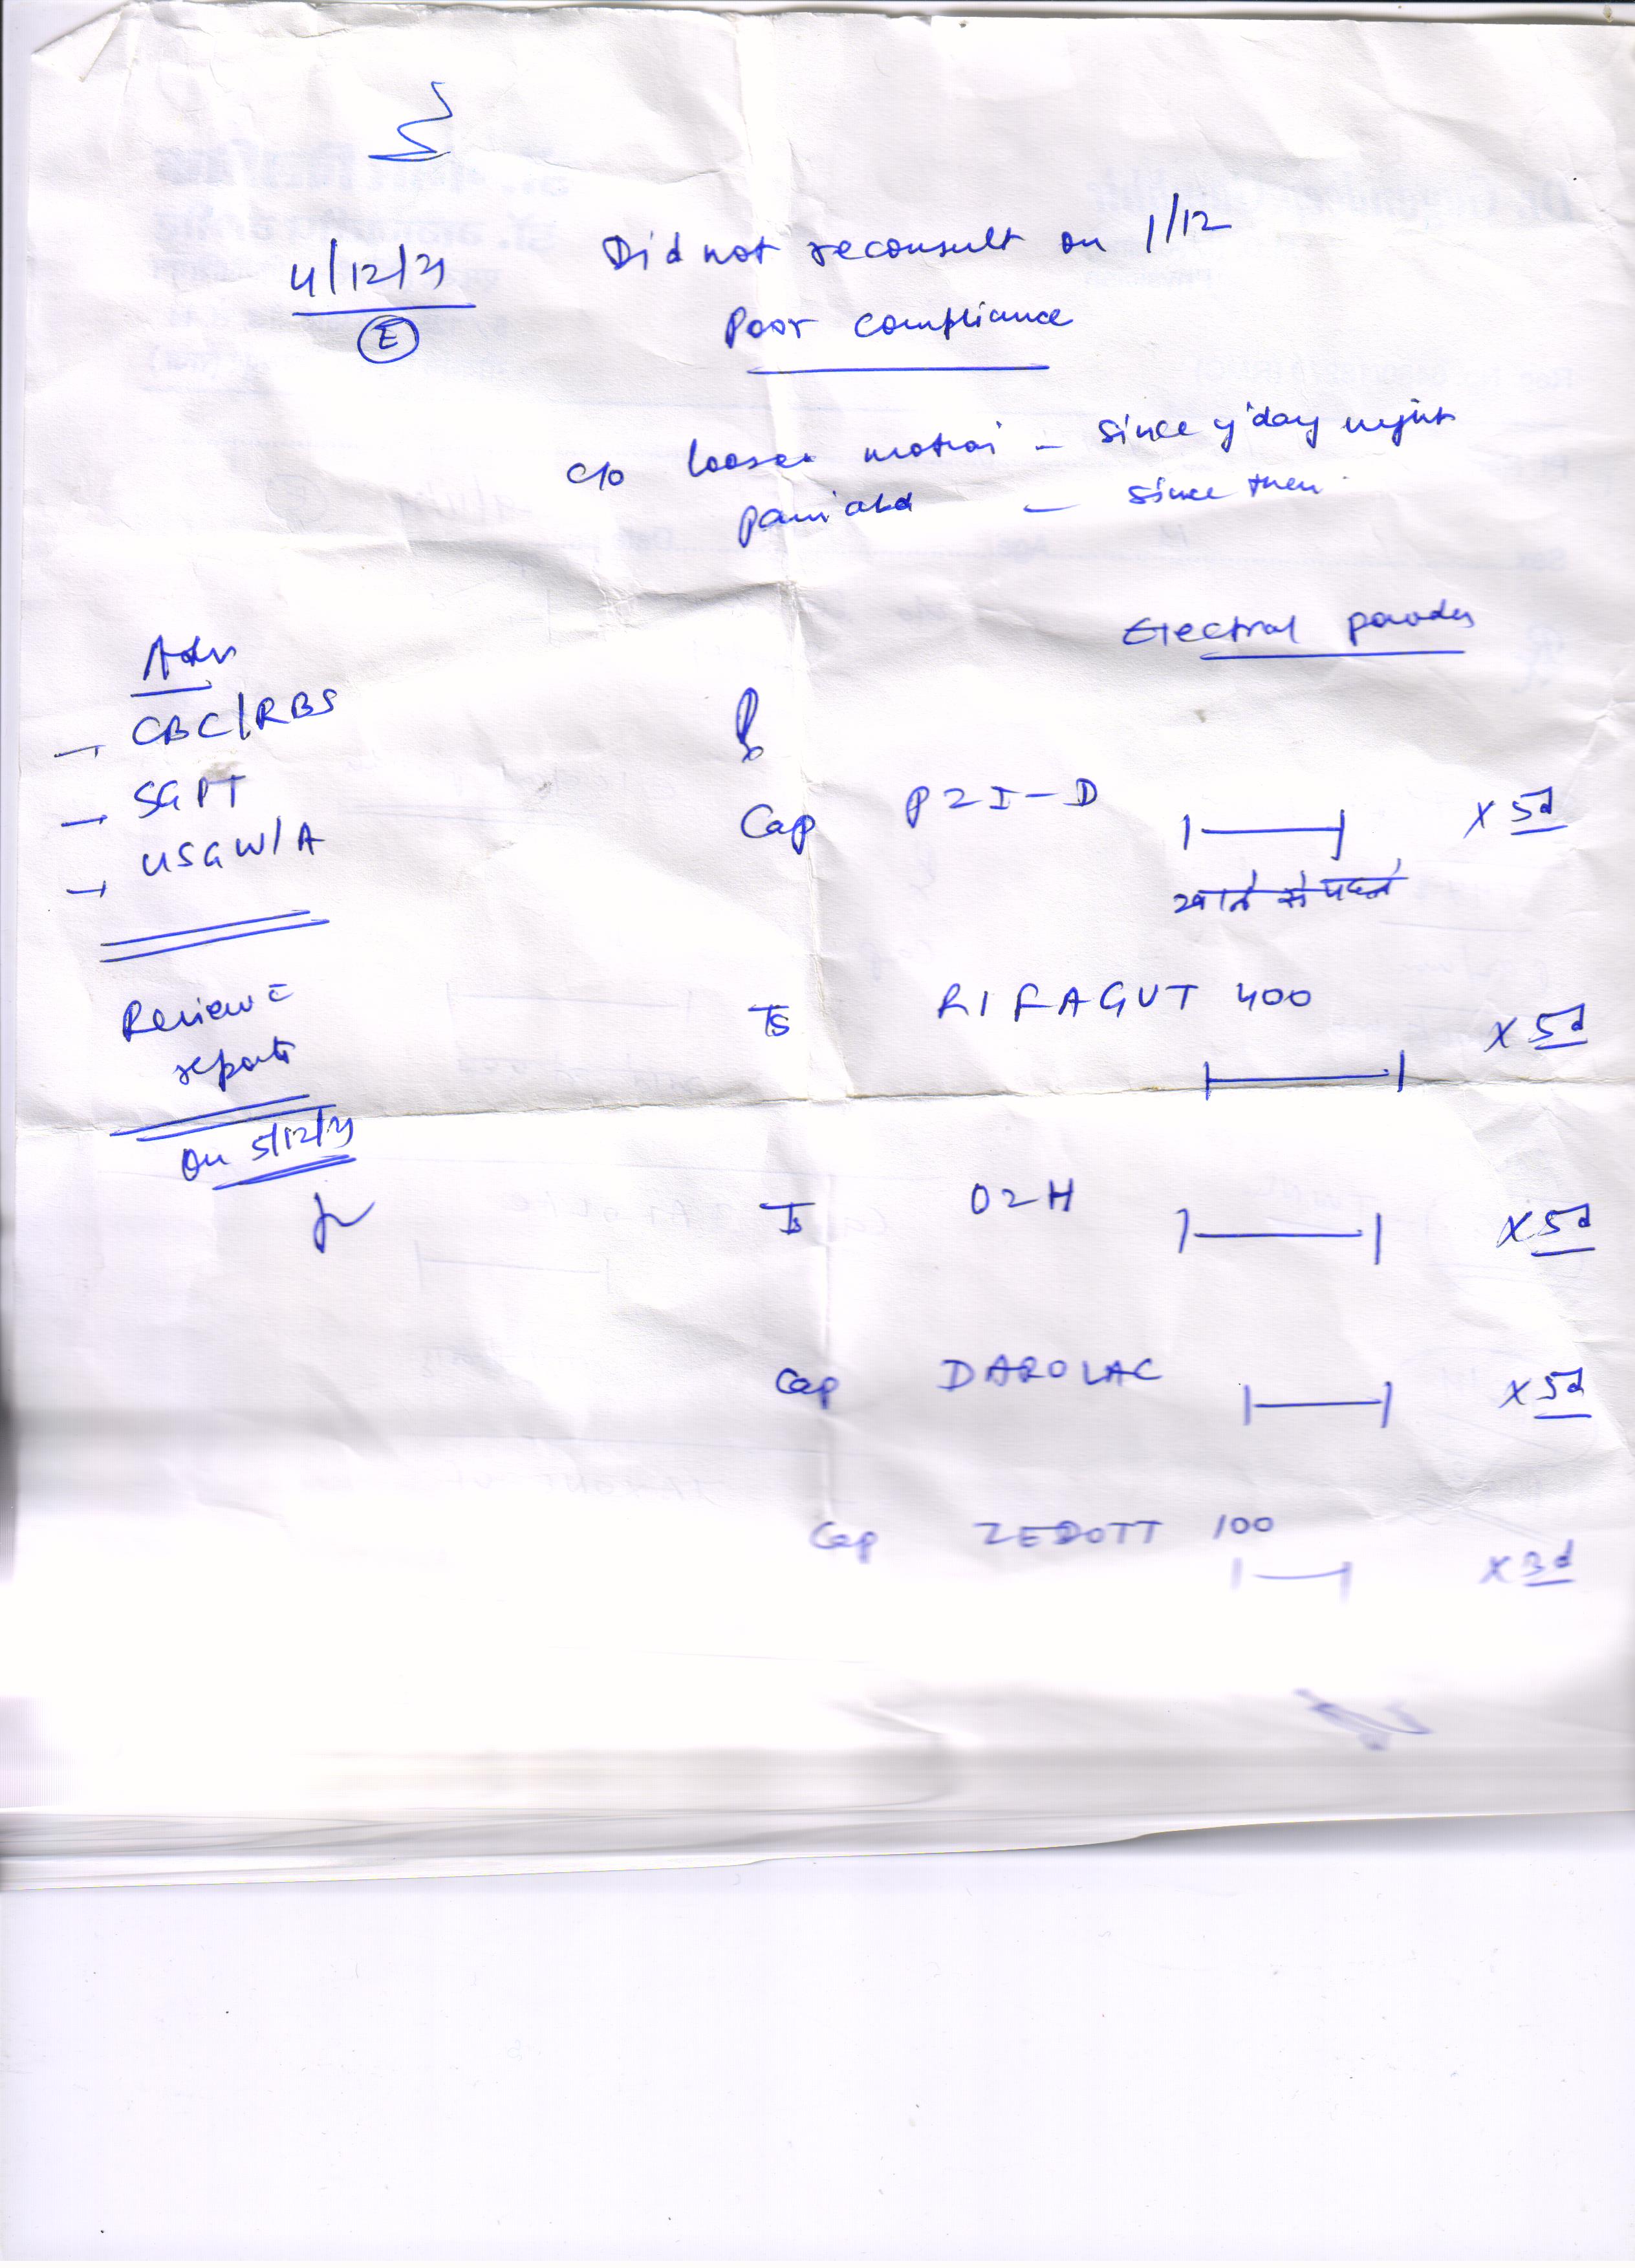 4/12/21
E
Did not reconsult on 1/12
Poor compliance
c/o loose motion – since y'day night
pain abd – since then
Electral powder
Adv
→ CBC/RBS
→ SGPT
→ USG W/A
Review c̄
reports
On 5/12/21
Rx
Cap PZI-D |—| x 5d
खाने से पहले
Tb RIFAGUT 400 x 5d
|—|
Tb O2H |—| x 5d
Cap DAROLAC |—| x 5d
Cap ZEDOTT 100
|—| x 3d